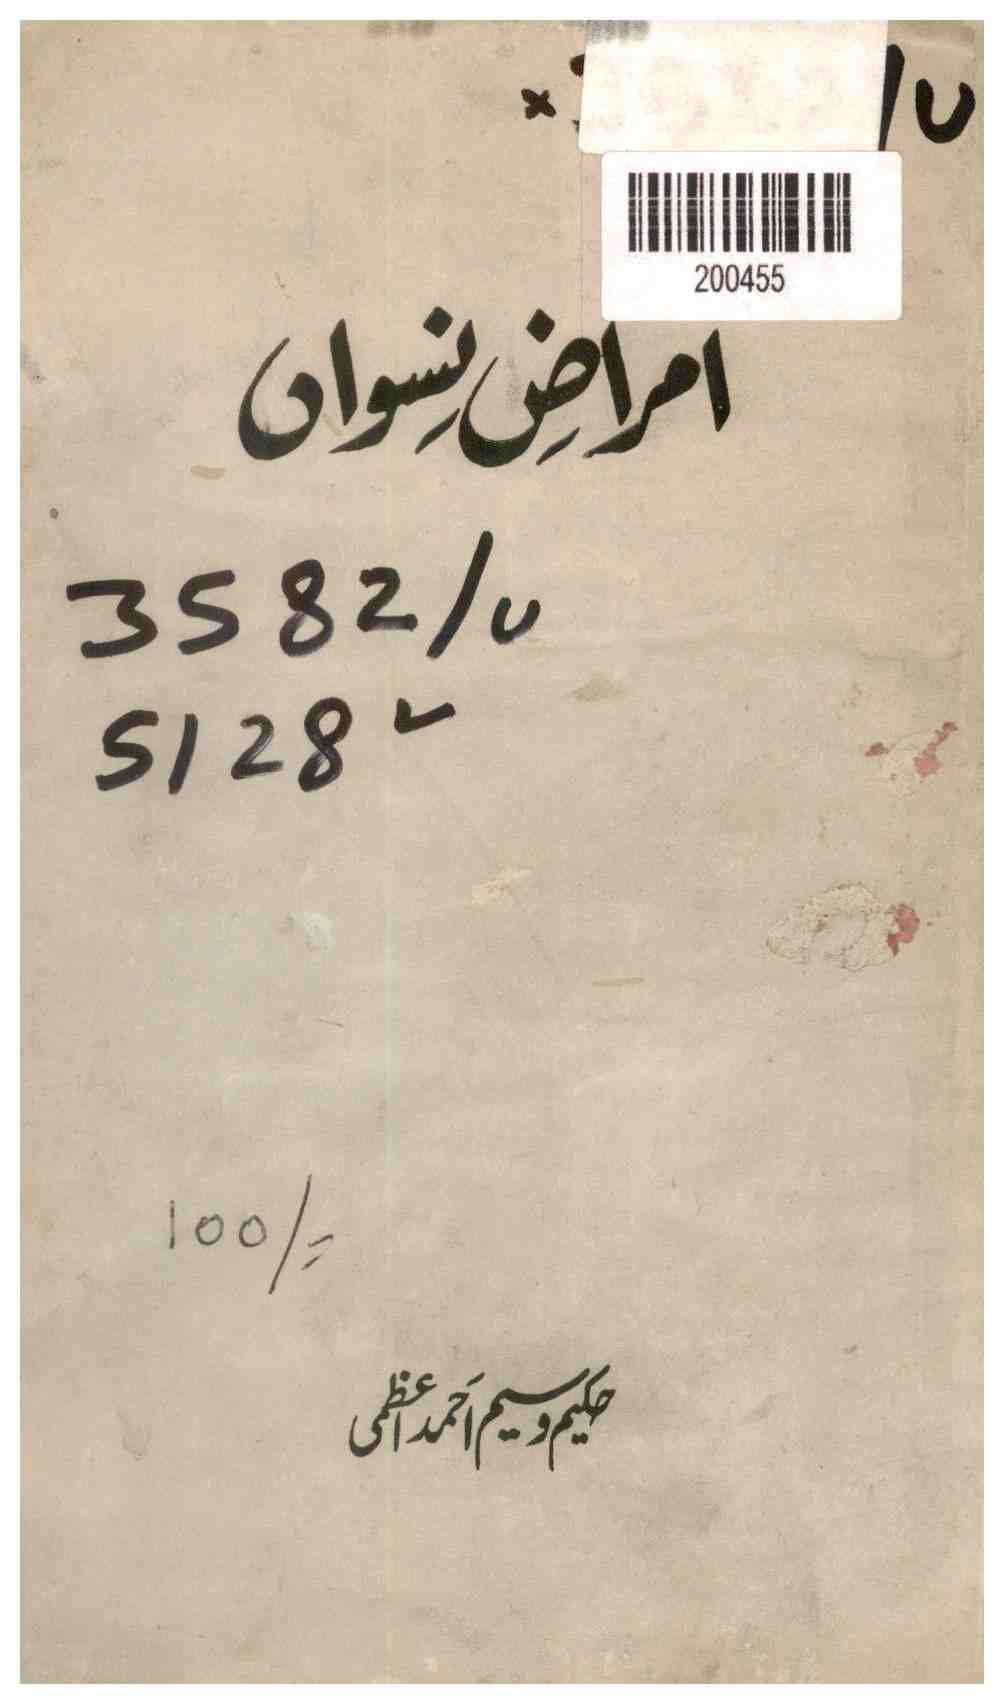 /U
200455
امراضِ نِسواں
3582/U
5128
100/=
حکیم وسیم احمد اعظمی